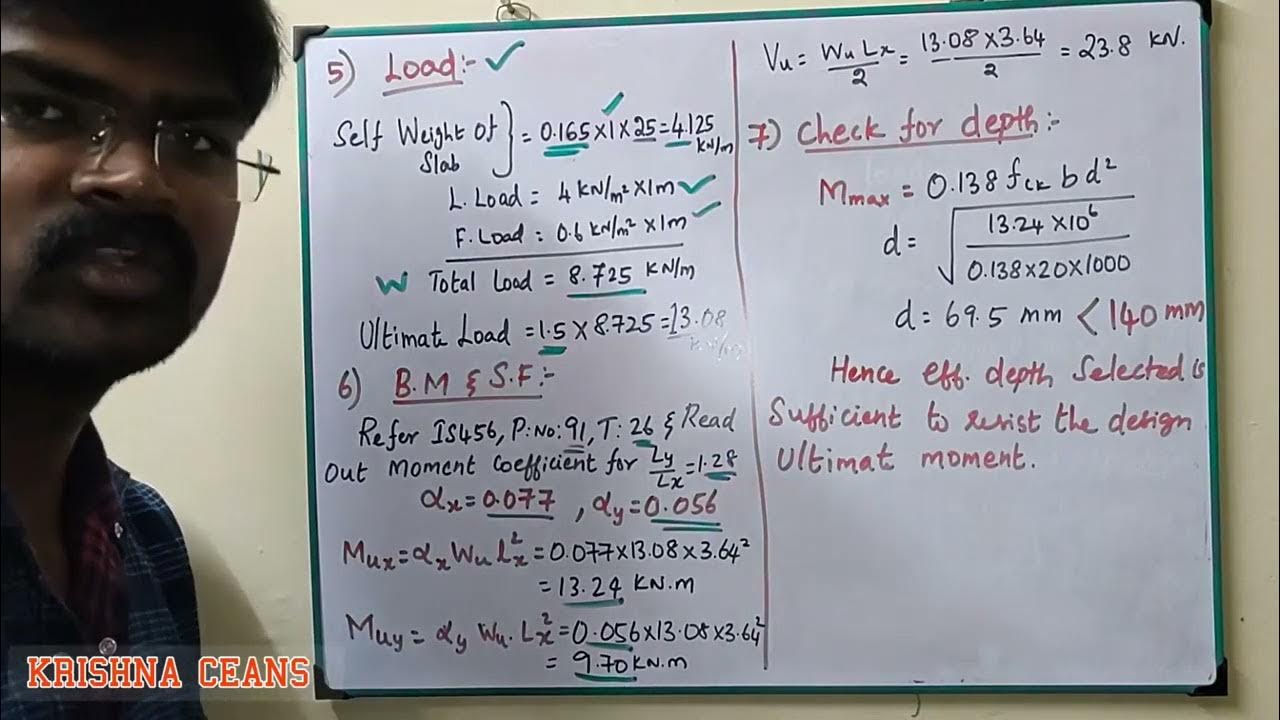 5) Load:- ✓
Self Weight of Slab } = 0.165 × 1 × 25 = 4.125 KN/m
L. Load = 4 KN/m² × 1m ✓
F. Load = 0.6 KN/m² × 1m ✓
W Total Load = 8.725 KN/m
Ultimate Load = 1.5 × 8.725 = 13.08 KN/m
6) B.M & S.F:-
Refer IS456, P.No: 91, T: 26 & Read
Out moment coefficient for Ly/Lx = 1.28
αx = 0.077 , αy = 0.056
Mux = αx Wu lx² = 0.077 × 13.08 × 3.64²
= 13.24 KN.m
Muy = αy Wu. Lx² = 0.056 × 13.08 × 3.64²
= 9.70 KN.m
Vu = Wu Lx / 2 = 13.08 × 3.64 / 2 = 23.8 KN.
7) Check for depth:-
Mmax = 0.138 fck b d²
d = √(13.24 × 10⁶ / 0.138 × 20 × 1000)
d = 69.5 mm < 140 mm
Hence eff. depth Selected is
Sufficient to resist the design
Ultimat moment.
KRISHNA CEANS